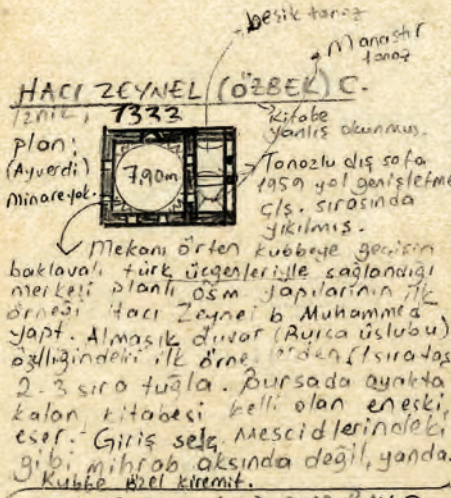 beşik tonoz
Manastır
tonoz
HACI ZEYNEL (ÖZBEK) C.
İznik, 1333
Kitabe
yanlış okunmuş.
plan:
(Ayverdi)
Minare yok.
7,90m
Tonozlu dış sofa
1959 yol genişletme
çlş. sırasında
yıkılmış.
Mekanı örten kubbeye geçişin
baklavalı türk üçgenleriyle sağlandığı
merkezi planlı osm. yapılarının ilk
örneği Hacı Zeynel b Muhammed
yapt. Almaşık duvar (Bursa üslubu)
özlliğindeki ilk örneklerden (1 sıra taş
2-3 sıra tuğla. Bursada ayakta
kalan kitabesi belli olan en eski
eser. Giriş selç. Mescidlerindeki
gibi mihrab aksında değil, yanda.
Kubbe özel kiremit.